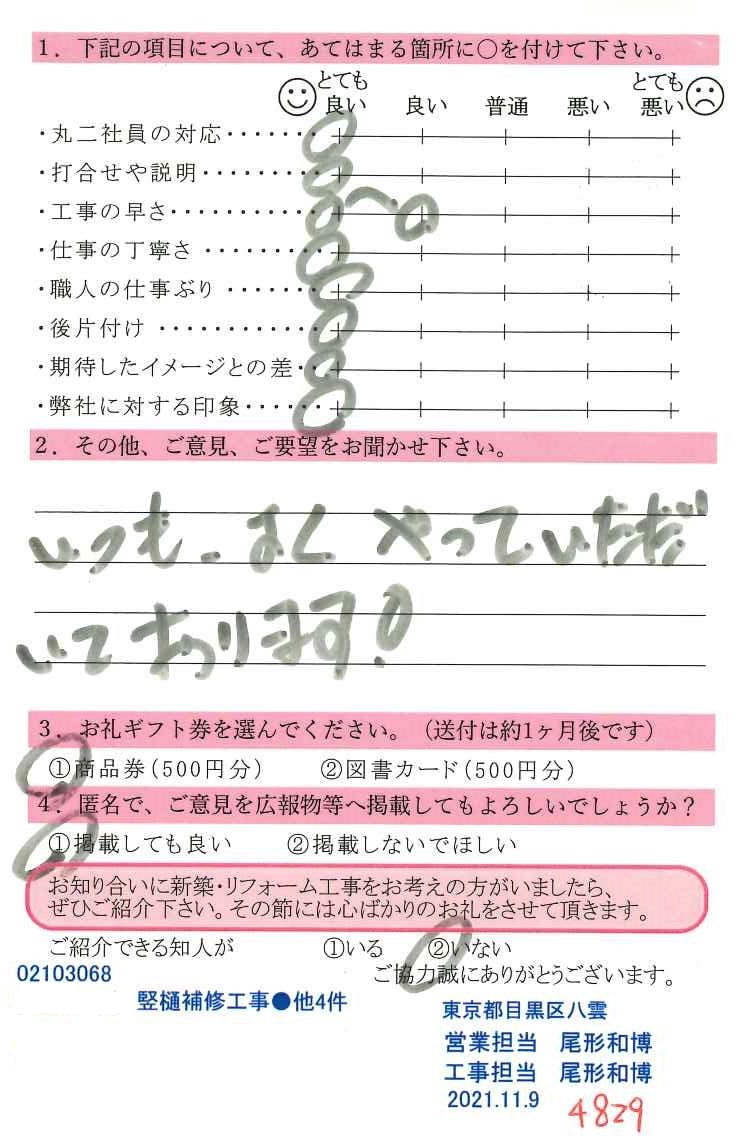 1. 下記の項目について、あてはまる箇所に○を付けて下さい。
とても良い 良い 普通 悪い とても悪い
・丸二社員の対応‥‥‥
・打合せや説明‥‥‥‥
・工事の早さ‥‥‥‥‥
・仕事の丁寧さ ‥‥‥‥
・職人の仕事ぶり ‥‥‥
・後片付け ‥‥‥‥‥‥
・期待したイメージとの差‥
・弊社に対する印象‥‥‥
2. その他、ご意見、ご要望をお聞かせ下さい。
いつも、よくやっていただ
いております!
3. お礼ギフト券を選んでください。（送付は約1ヶ月後です）
①商品券（500円分） ②図書カード（500円分）
4. 匿名で、ご意見を広報物等へ掲載してもよろしいでしょうか？
①掲載しても良い ②掲載しないでほしい
お知り合いに新築・リフォーム工事をお考えの方がいましたら、
ぜひご紹介下さい。その節には心ばかりのお礼をさせて頂きます。
ご紹介できる知人が ①いる ②いない
ご協力誠にありがとうございます。
02103068
竪樋補修工事●他4件
東京都目黒区八雲
営業担当 尾形和博
工事担当 尾形和博
2021.11.9
4829